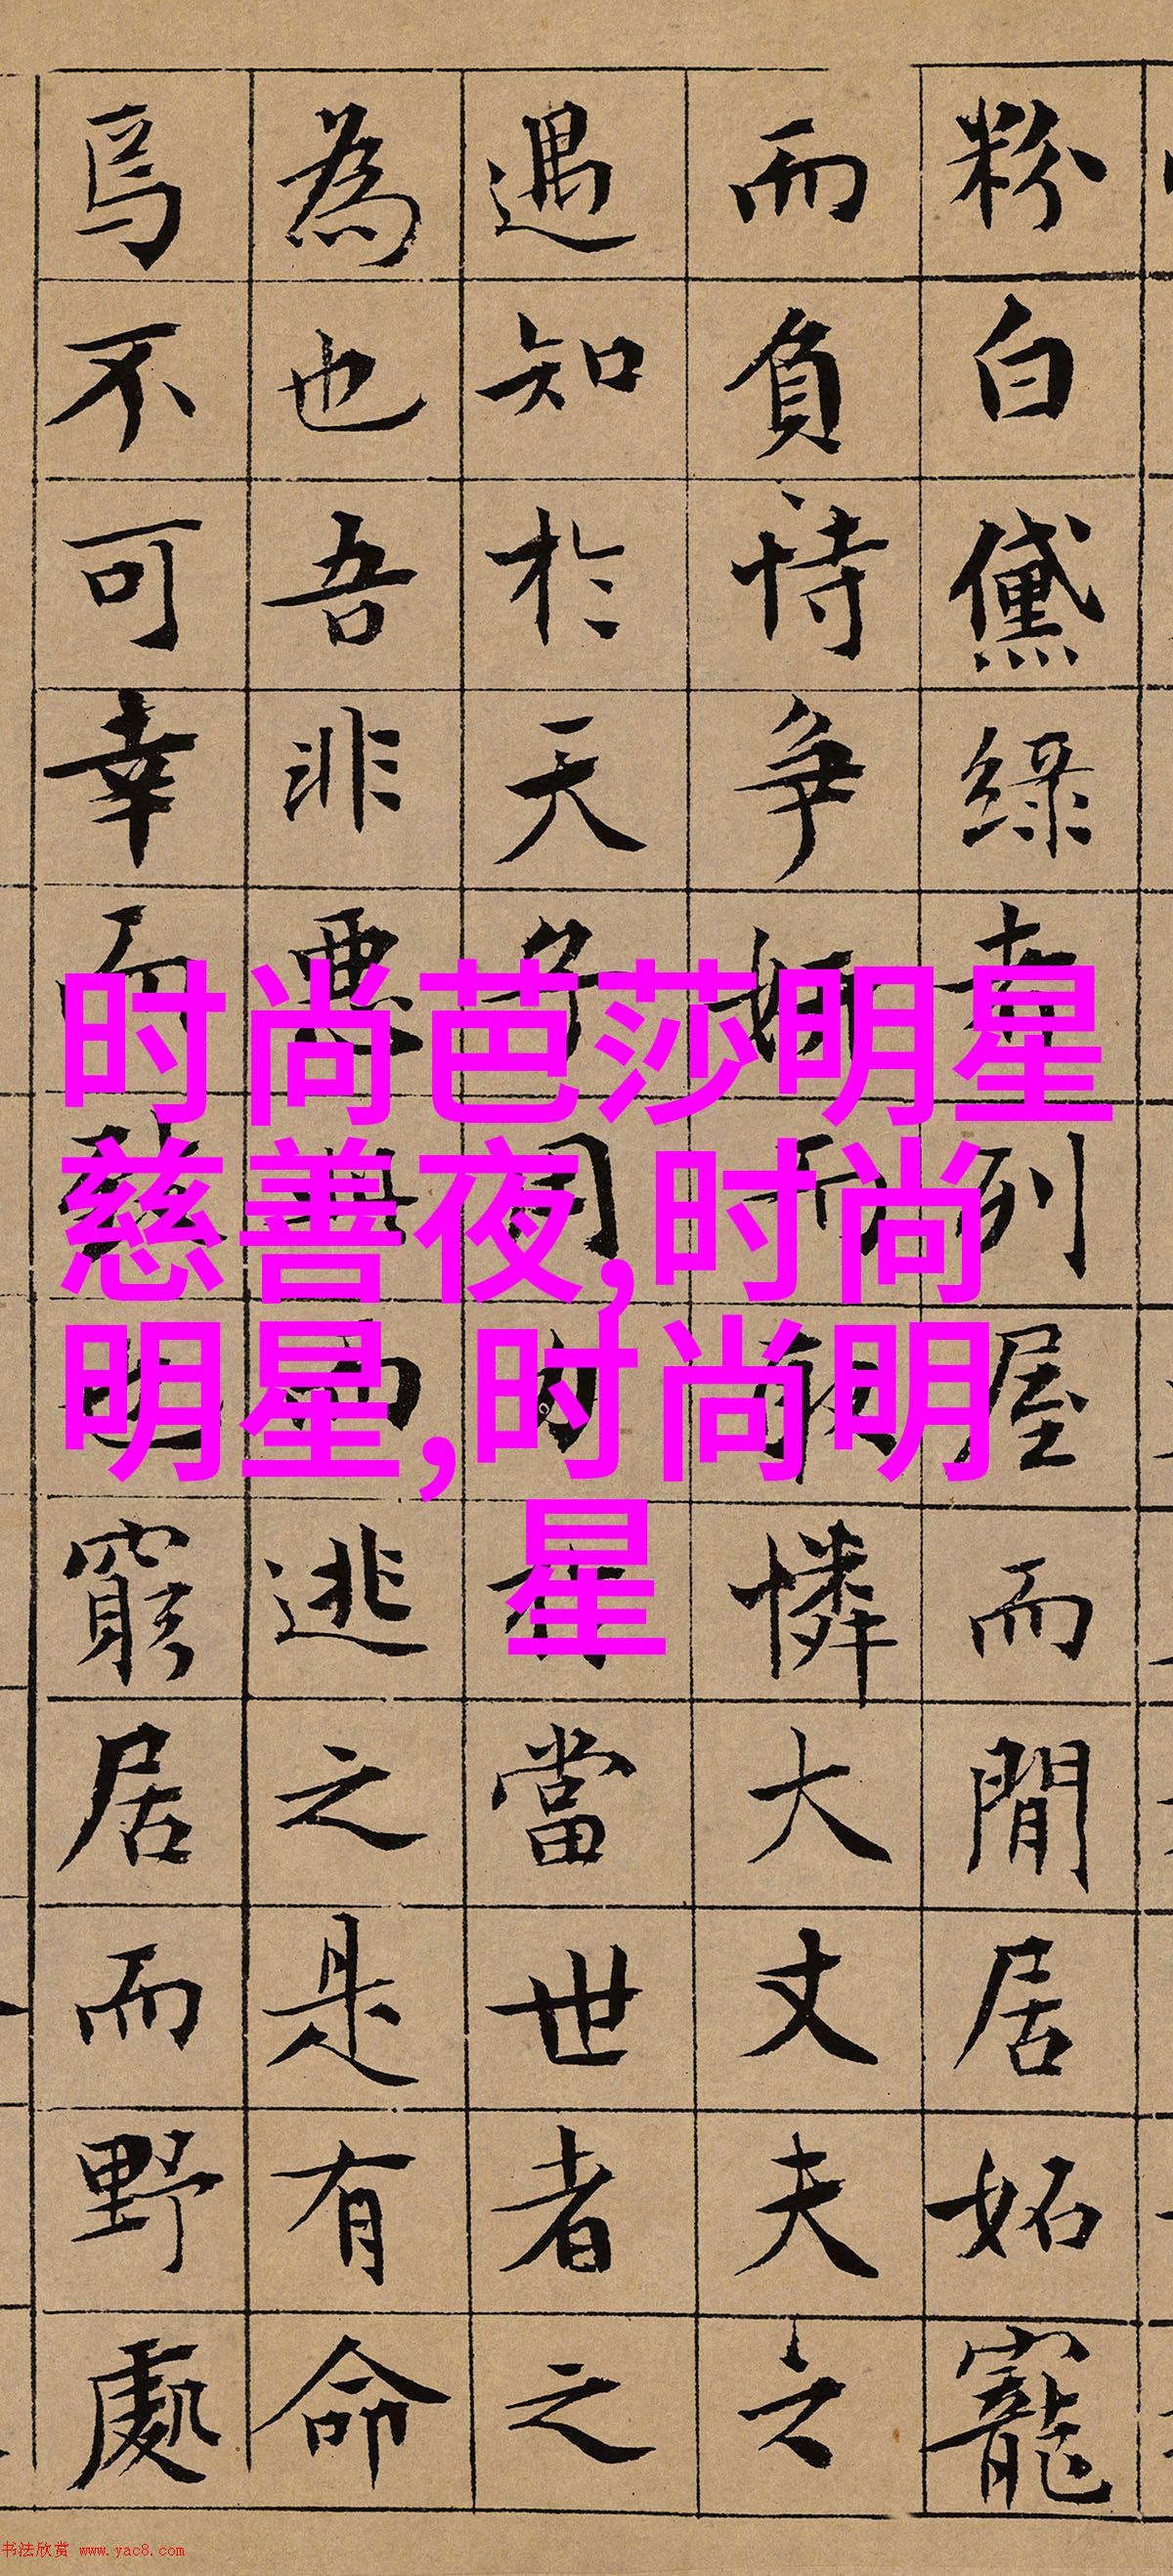 粉白黛綠者列屋而閒居妬寵
而負恃爭妍而取憐大丈夫之
遇知於天子用力當世者之
為也吾非惡而逃之是有命
焉不可幸而致也窮居而野處
时尚芭莎明星
慈善夜,时尚
明星,时尚明
星
书法欣赏 www.yac8.com